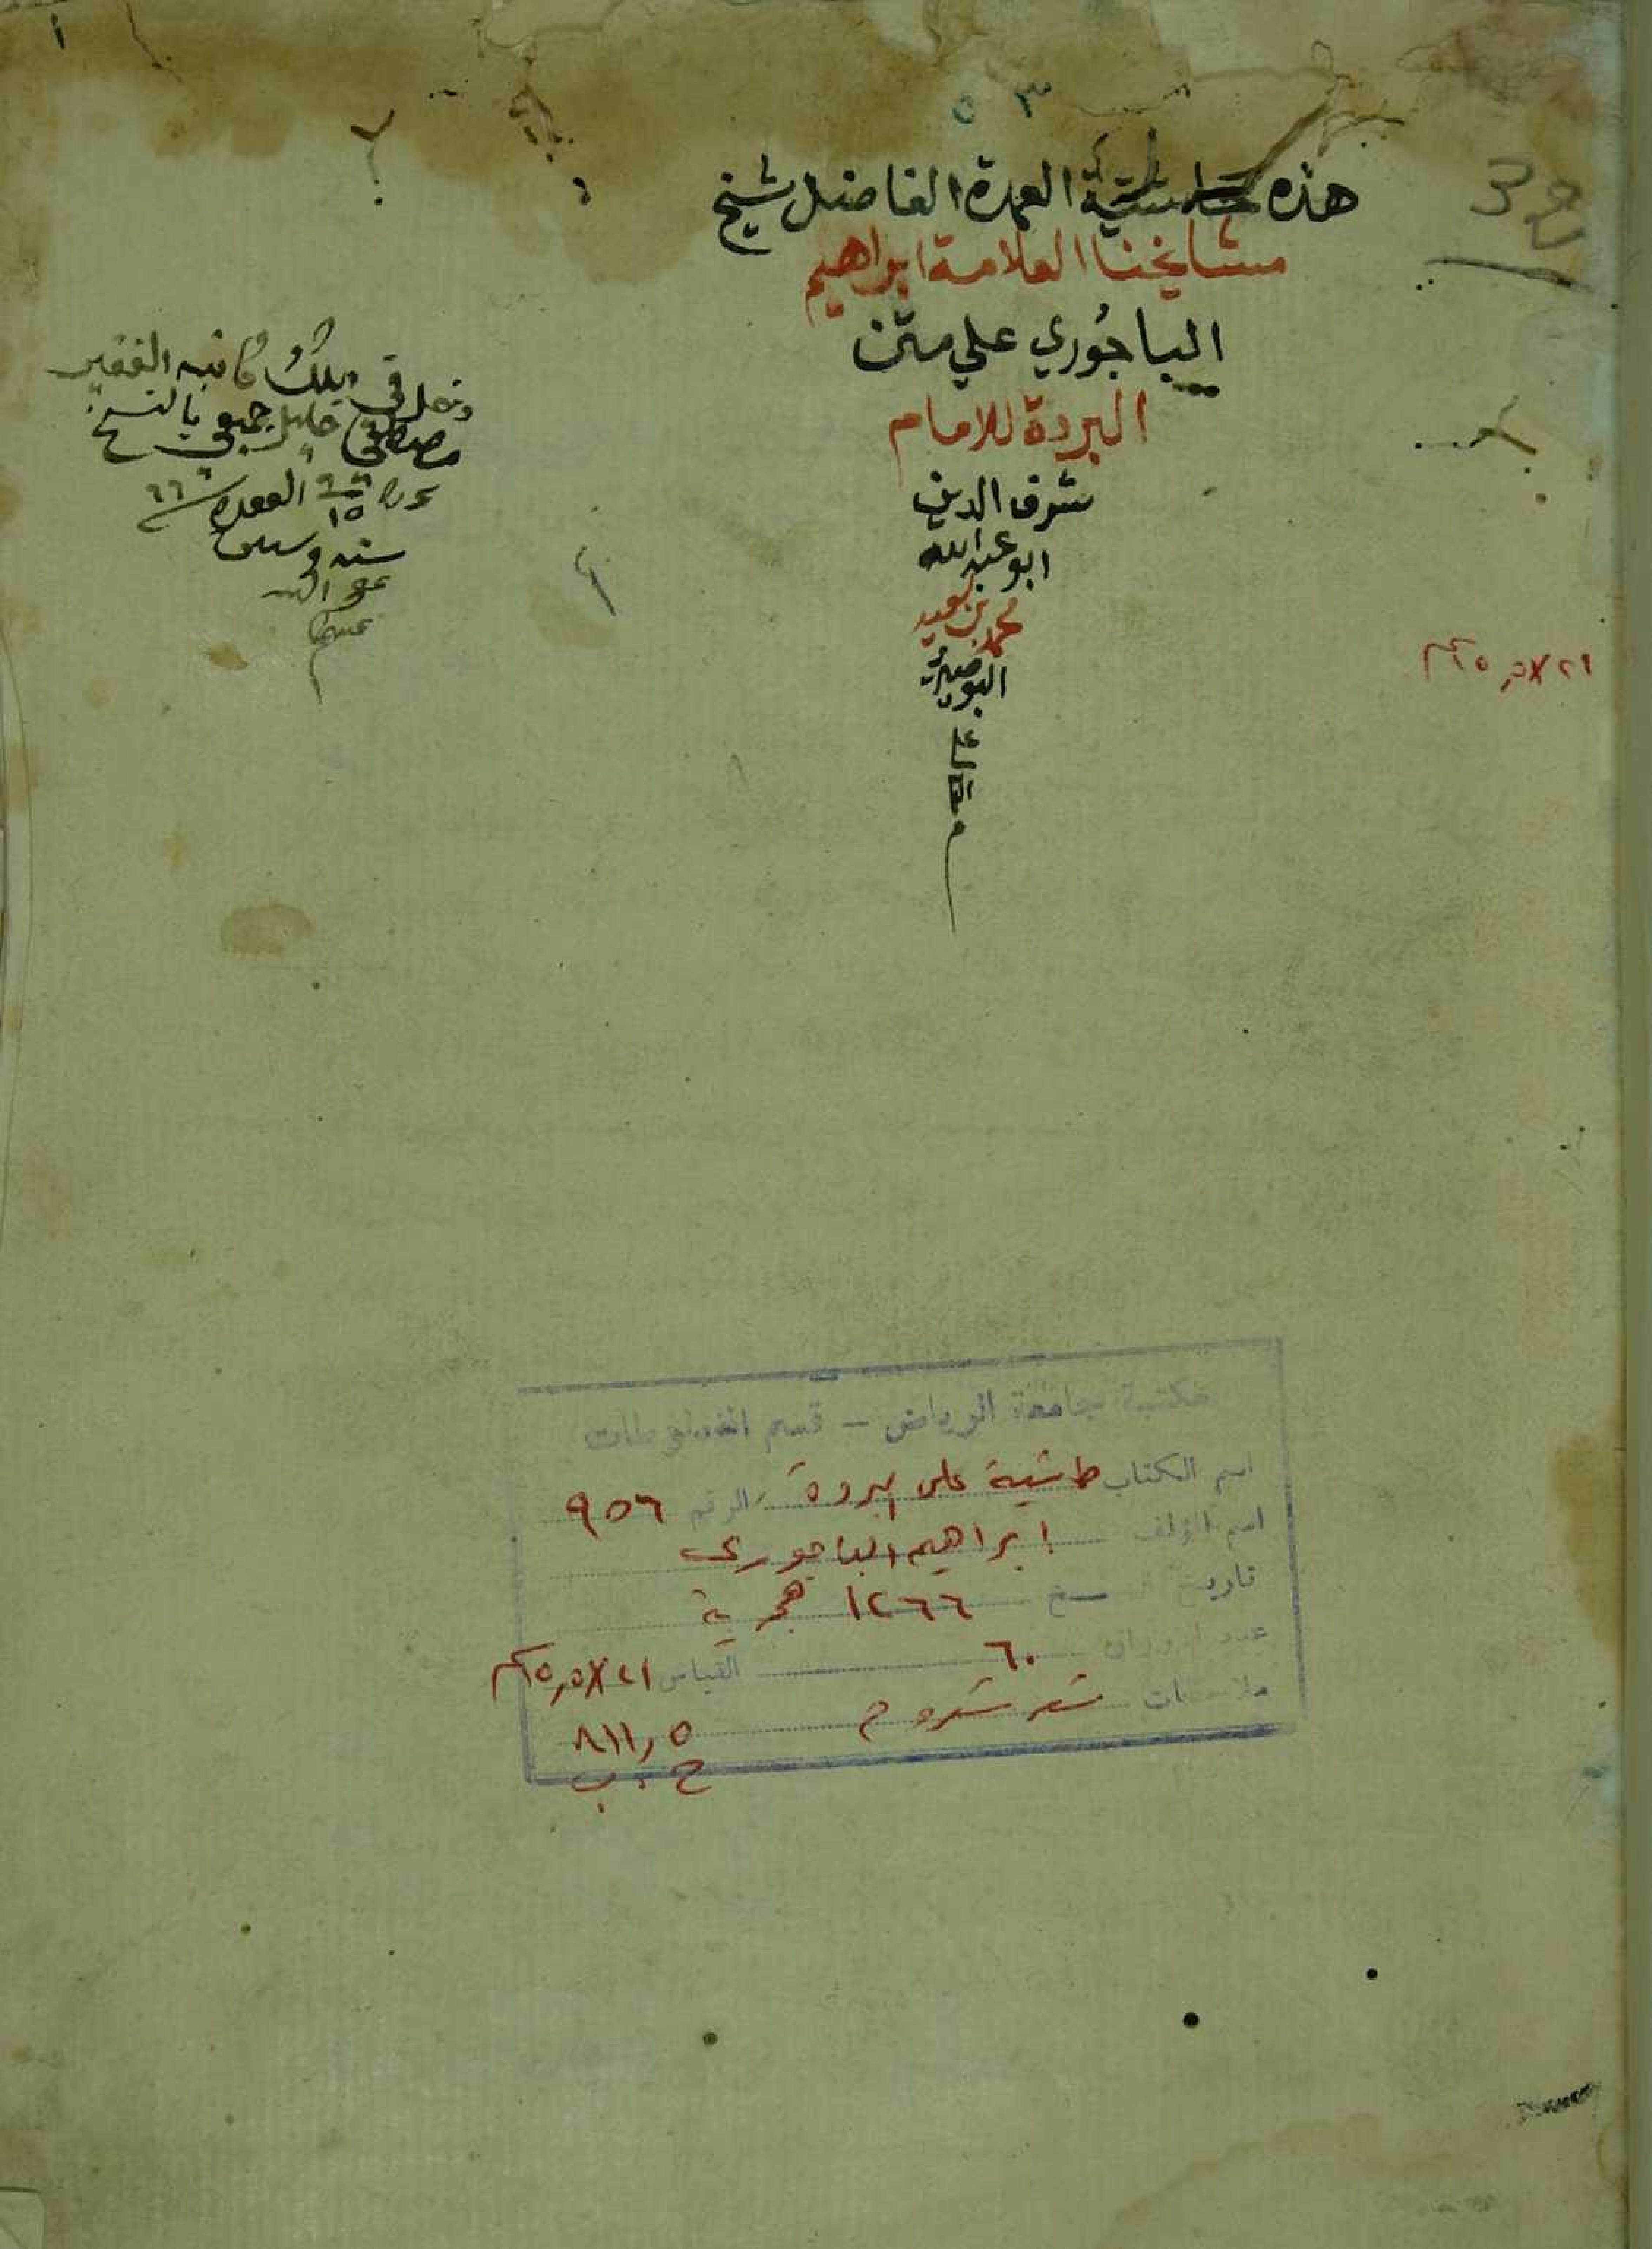 أ
٥ ٣
32
هذه حاشية العمدة الفاضل شيخ
مشايخنا العلامة ابراهيم
الباجوري علي متن
البردة للامام
شرف الدين
ابو عبد الله
محمد بن سعيد
البوصيري
٢١×١٥,٥ سم
كاتبه الفقير
مصطفى خليل بالنسخ
١٥
القعدة
سنه
عفى الله
عنهما
مكتبة جامعة الرياض – قسم المخطوطات
اسم الكتاب حاشية على البردة الرقم ٩٥٦
اسم المؤلف ابراهيم الباجورى
تاريخ النسخ ١٢٦٦ هجرية
عدد الاوراق ٦٠ القياس ٢١×١٥,٥ سم
ملاحظات شعر شروح
٨١١,٥
ح . ب